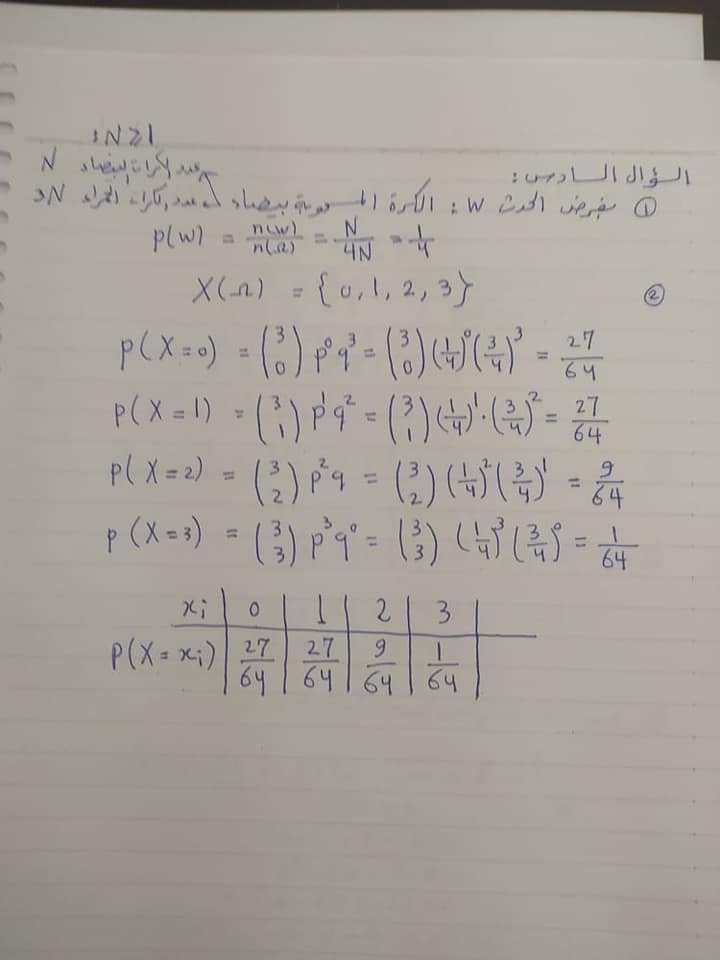 N≥1:
السؤال السادس:
عدد الكرات البيضاء N
① بفرض الحدث W: الكرة المسحوبة بيضاء عدد الكرات الحمراء 3N
p(w) = n(w)/n(Ω) = N/4N = 1/4
② X(Ω) = {0, 1, 2, 3}
p(X=0) = (3 0) p⁰q³ = (3 0) (1/4)⁰ (3/4)³ = 27/64
p(X=1) = (3 1) p¹q² = (3 1) (1/4)¹ · (3/4)² = 27/64
p(X=2) = (3 2) p²q = (3 2) (1/4)² (3/4)¹ = 9/64
p(X=3) = (3 3) p³q⁰ = (3 3) (1/4)³ (3/4)⁰ = 1/64
xᵢ | 0 | 1 | 2 | 3 |
p(X=xᵢ) | 27/64 | 27/64 | 9/64 | 1/64 |